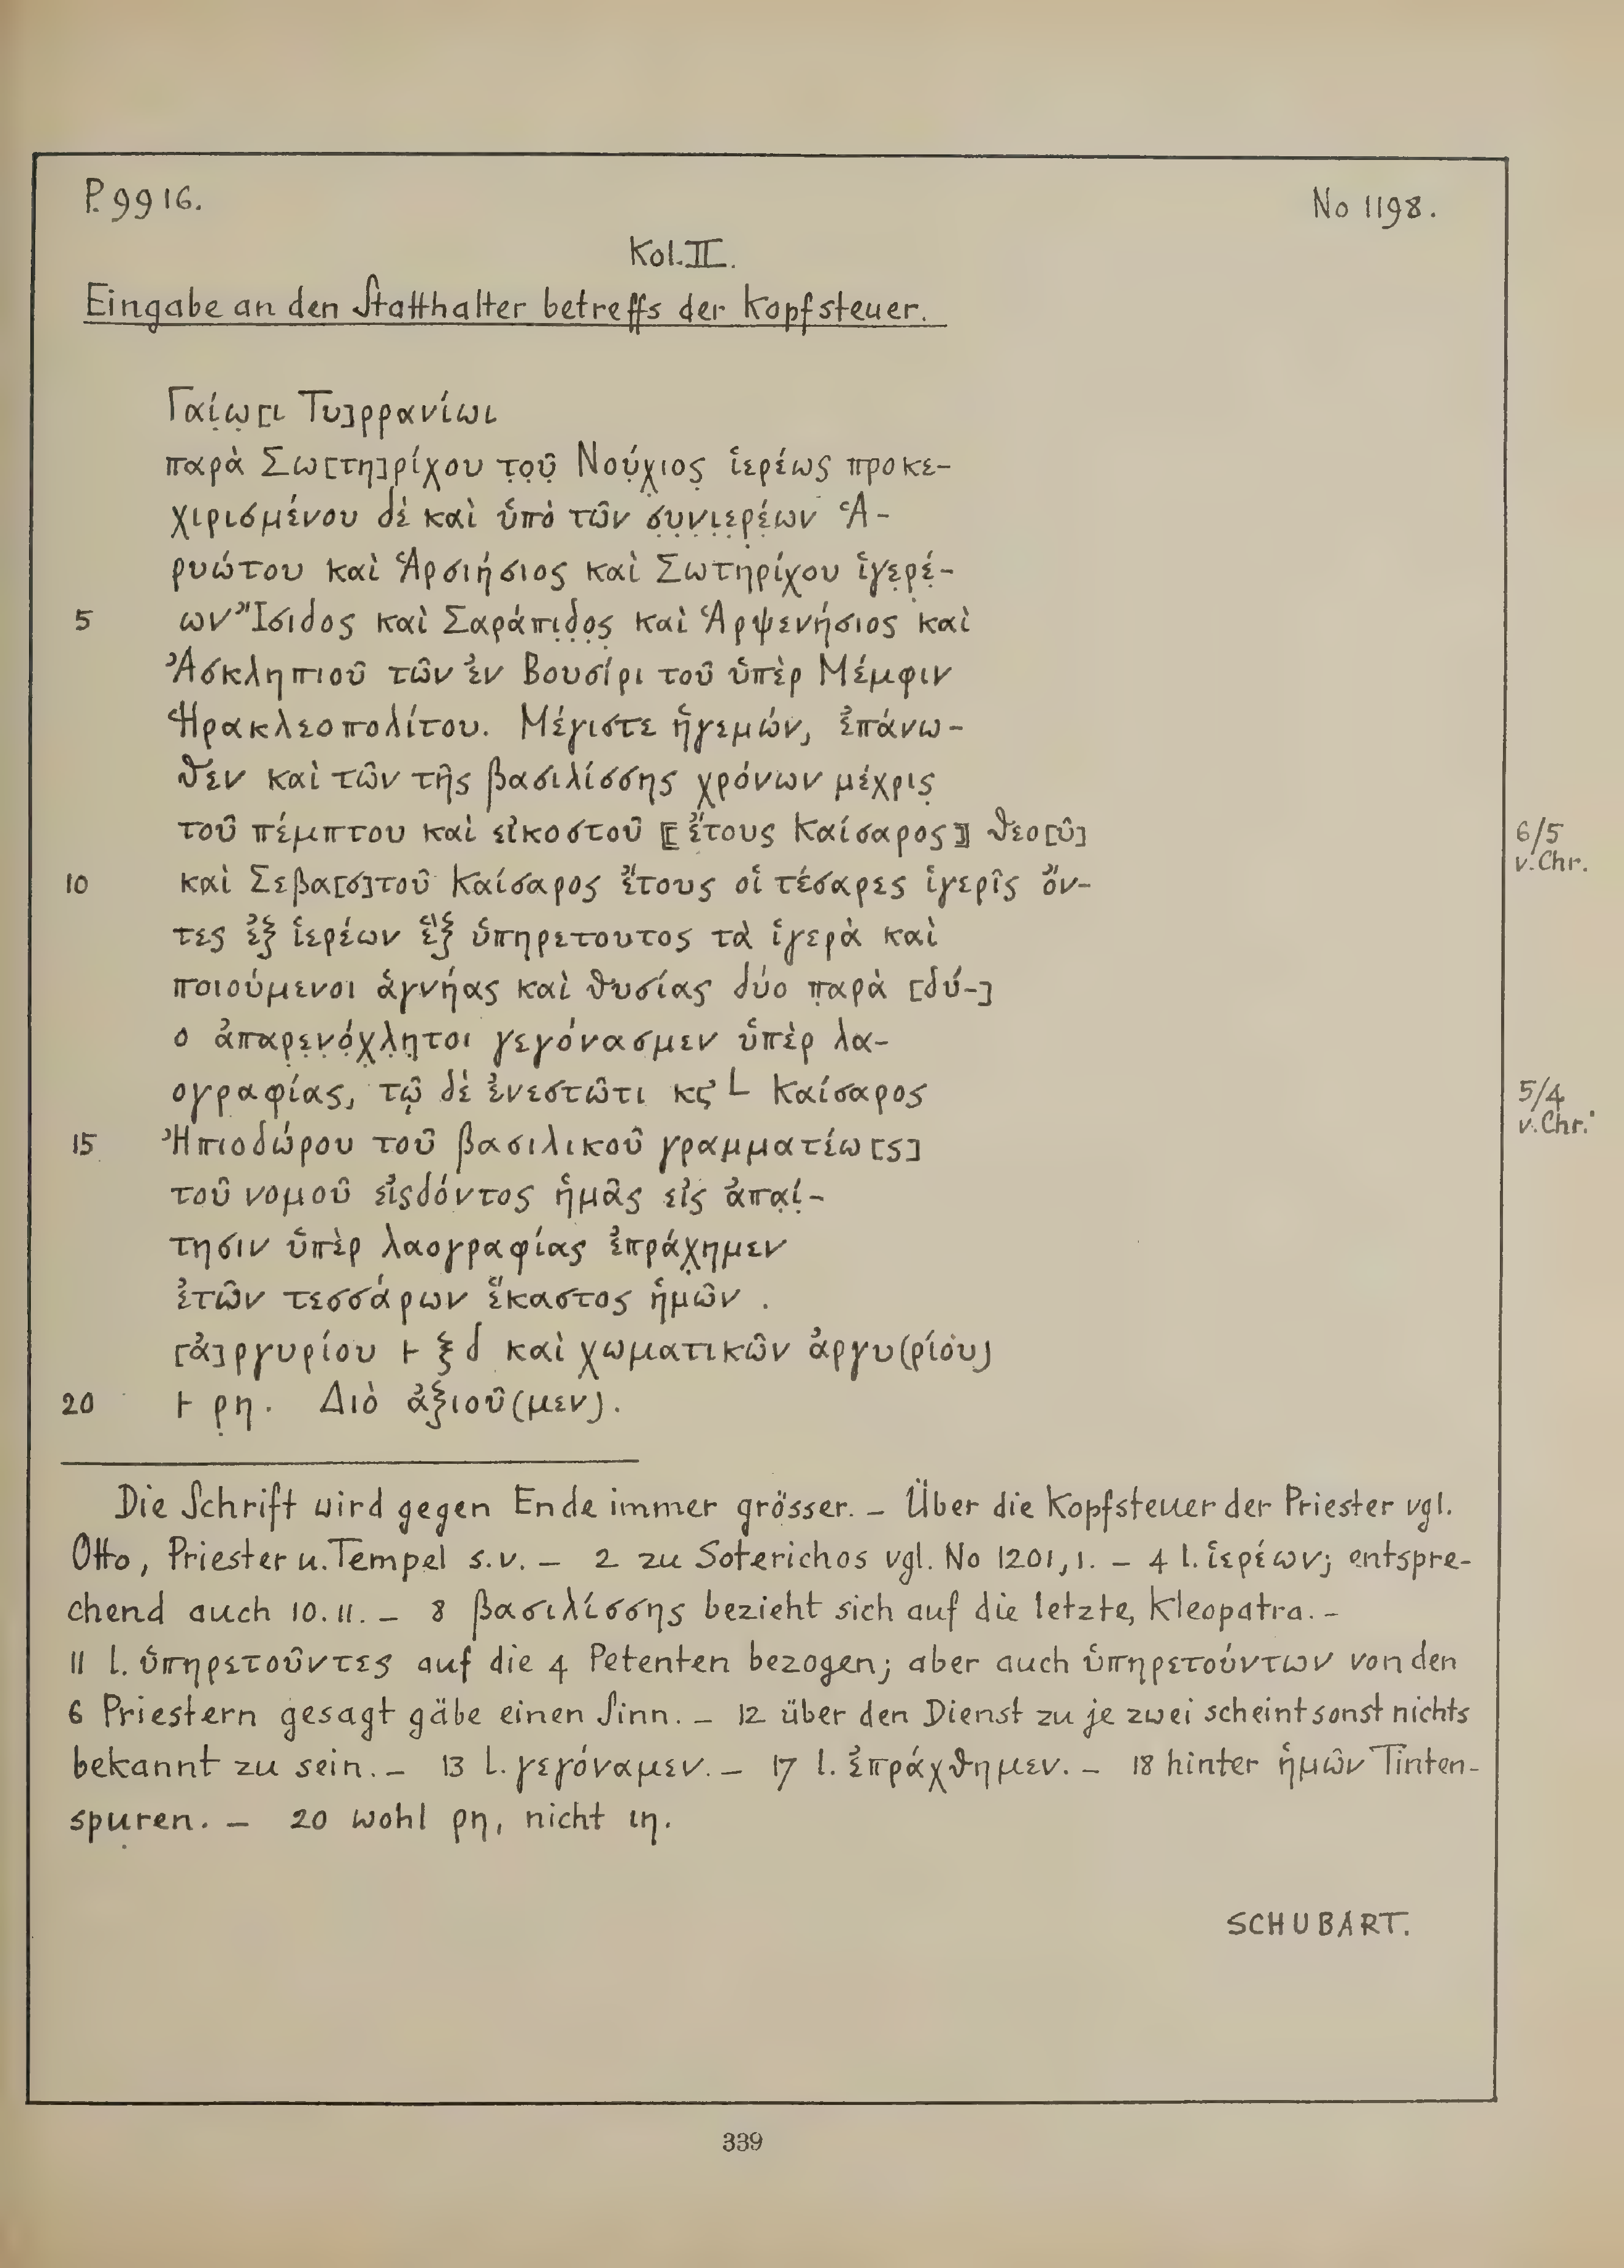 P. 9916.
No 1198.
Kol. II.
Eingabe an den Statthalter betreffs der Kopfsteuer.
Γαί̣ω̣[ι Τυ]ρρανίωι
παρὰ Σω[τη]ρίχου τ̣ο̣ῦ̣ Νού̣χ̣ιος̣ ἱερέως προκε-
χιρισμένου δὲ καὶ ὑπὸ τῶν σ̣υ̣ν̣ι̣ε̣ρ̣έ̣ων Ἁ-
ρυώτου καὶ Ἁρσιήσιος καὶ Σωτηρίχου ἱγε̣ρ̣έ̣-
5 ων Ἴσιδος καὶ Σαράπι̣δ̣ο̣ς̣ καὶ Ἁρψενήσιος καὶ
Ἀσκληπιοῦ τῶν ἐν Βουσίρι τοῦ ὑπὲρ Μέμφιν
Ἡρακλεοπολίτου. Μέγιστε ἡγεμών, ἐπάνω-
θεν καὶ τῶν τῆς βασιλίσσης χρόνων μέχρις̣
τοῦ πέμπτου καὶ εἰκοστοῦ ⟦ἔτους Καίσαρος⟧ θεο[ῦ]
6/5
v. Chr.
10 κα̣ὶ Σεβα[σ]τοῦ Καίσαρος ἔτους οἱ τέσαρες ἱγερῖς ὄν-
τες ἐξ ἱερέων ἓξ ὑπηρετουτος τὰ ἱγερὰ καὶ
ποιούμενοι ἁγνήας καὶ θυσίας δύο π̣αρὰ [δύ-]
ο ἀπαρ̣ε̣ν̣ό̣χ̣λ̣η̣τοι γεγόνασμεν ὑπὲρ λα-
ογραφίας, τῷ δὲ ἐνεστῶτι κϛ L Καίσαρος
5/4
v. Chr.
15 Ἠπιοδώρου τοῦ βασιλικοῦ γραμματέω[ς]
τοῦ νομοῦ εἰςδόντος ἡμᾶς εἰς ἀπα̣ί̣-
τησιν ὑπὲρ λαογραφίας ἐπράχ̣ημεν
ἐτῶν τεσσάρων ἕκαστος ἡμῶν .
[ἀ]ργυρίου 𐅂 ξδ καὶ χωματικῶν ἀργυ(ρίου)
20 𐅂 ρ̣η. Διὸ ἀξιοῦ(μεν).
Die Schrift wird gegen Ende immer grösser. – Über die Kopfsteuer der Priester vgl.
Otto, Priester u. Tempel s. v. – 2 zu Soterichos vgl. No 1201, 1. – 4 l. ἱερέων; entspre-
chend auch 10. 11. – 8 βασιλίσσης bezieht sich auf die letzte, Kleopatra. –
11 l. ὑπηρετοῦντες auf die 4 Petenten bezogen; aber auch ὑπηρετούντων von den
6 Priestern gesagt gäbe einen Sinn. – 12 über den Dienst zu je zwei scheint sonst nichts
bekannt zu sein. – 13 l. γεγόναμεν. – 17 l. ἐπράχθημεν. – 18 hinter ἡμῶν Tinten-
spuren. – 20 wohl ρη, nicht ιη.
SCHUBART.
339